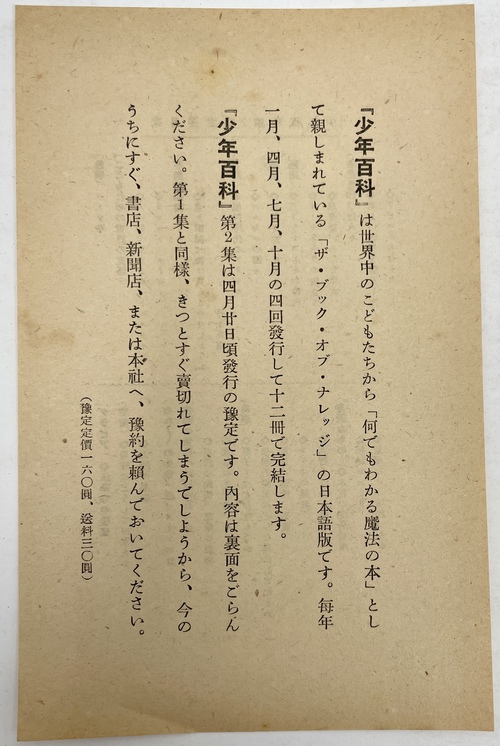 『少年百科』は世界中のこどもたちから「何でもわかる魔法の本」とし
て親しまれている「ザ・ブック・オブ・ナレッジ」の日本語版です。毎年
一月、四月、七月、十月の四回發行して十二冊で完結します。
『少年百科』第2集は四月廿日頃發行の豫定です。内容は裏面をごらん
ください。第1集と同様、きつとすぐ賣切れてしまうでしようから、今の
うちにすぐ、書店、新聞店、または本社へ、豫約を頼んでおいてください。
（豫定定價一六〇圓、送料三〇圓）